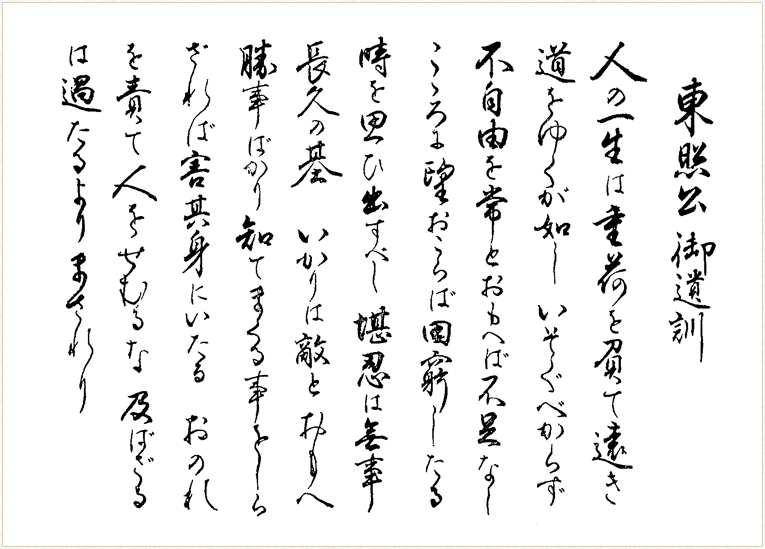 東照公御遺訓
人の一生は重荷を負て遠き
道をゆくが如し いそぐべからず
不自由を常とおもへば不足なし
こゝろに望おこらば困窮したる
時を思ひ出すべし 堪忍は無事
長久の基 いかりは敵とおもへ
勝事ばかり知てまくる事をしら
ざれば害其身にいたる おのれ
を責て人をせむるな 及ばざる
は過たるよりまされり